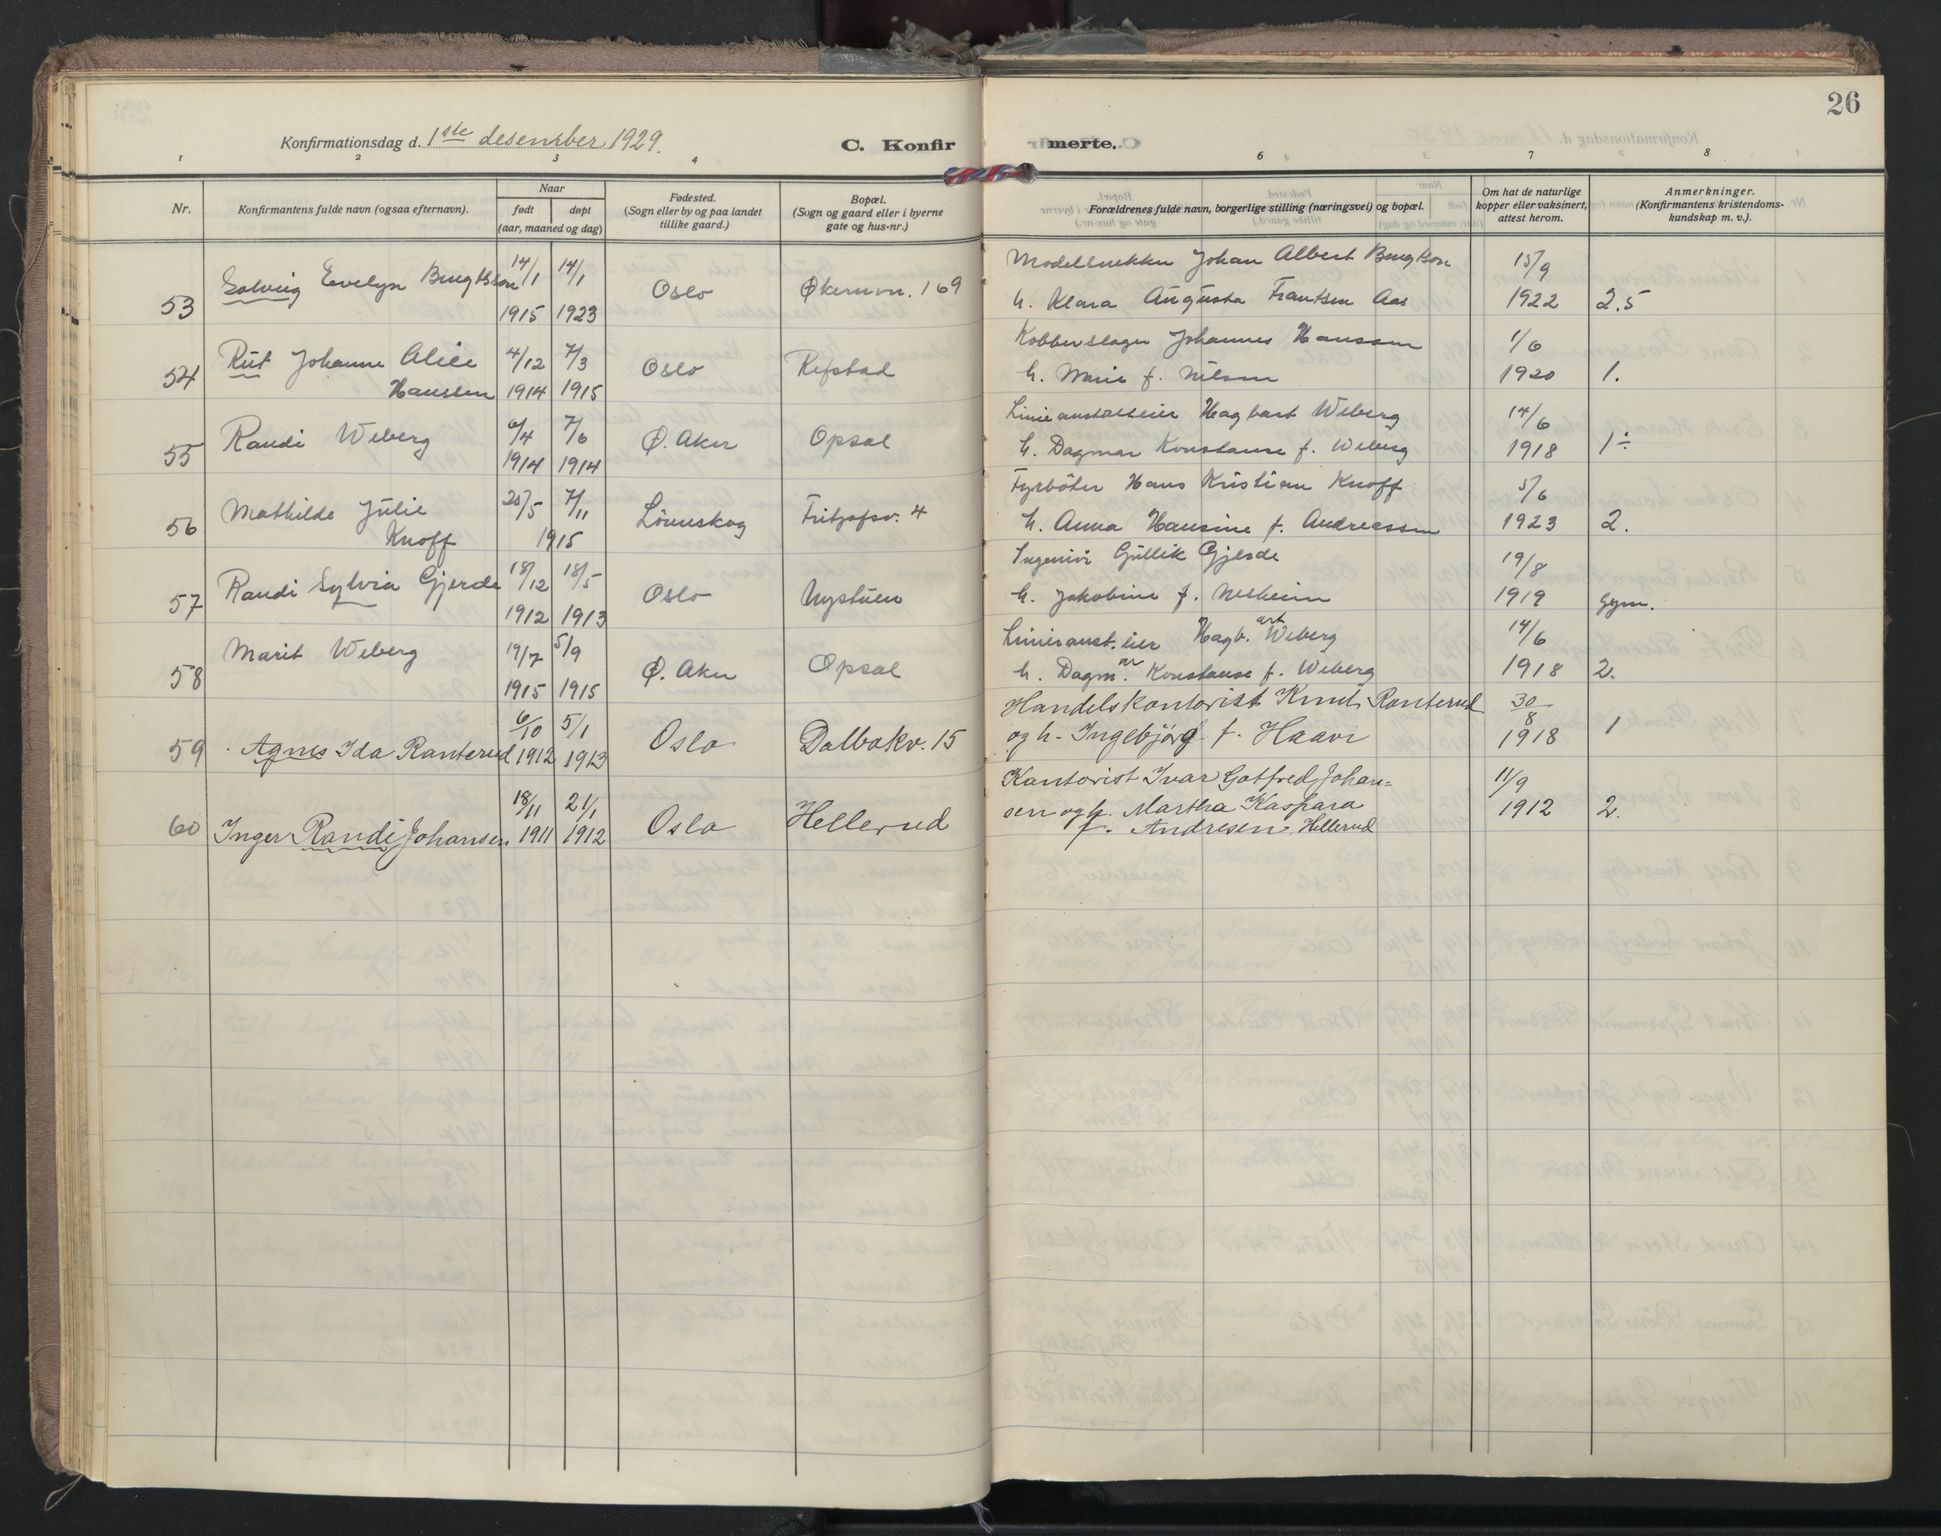 26
Konfirmationsdag d. 1ste desember 1929.
C. Konfirmerte.
1 2 3 4 5 6 7 8
Nr.
Konfirmantens fulde navn (ogsaa efternavn).
Naar
født døpt
(aar, maaned og dag)
Fødested.
(Sogn eller by og paa landet
tillike gaard.)
Bopæl.
(Sogn og gaard eller i byerne
gate og hus-nr.)
Forældrenes fulde navn, borgerlige stilling (næringsvei) og bopæl.
Om hat de naturlige
kopper eller vaksinert,
attest herom.
Anmerkninger.
(Konfirmantens kristendoms-
kundskap m. v.).
14/1 14/1 Modelsnekker Johan Albert Bengtson 15/9
53 Solveig Evelyn Bengtson 1915 1923 Oslo Økernvn. 169 h. Klara Augusta Frantsen Aas 1922 2.5
Rut Johanne Alice 4/12 7/3 Kobberslager Johannes Hanssen 1/6
54 Hanssen 1914 1915 Oslo Refstad h. Marie f. Nilsen 1920 1.
6/4 7/6 Linieanstalteier Hagbart Weberg 14/6
55 Randi Weberg 1914 1914 Ø. Aker Opsal h. Dagmar Konstanse f. Weberg 1918 1÷
Mathilde Julie 20/5 7/11 Fyrbøter Hans Kristian Knoff 5/6
56 Knoff 1915 Lörenskog Fritjofsv. 4 h. Anna Hansine f. Andreassen 1923 2.
18/12 18/5 Ingeniör Gullik Gjerde 19/8
57 Randi Sylvia Gjerde 1912 1913 Oslo Nystuen h. Jakobine f. Nesheim 1919 Gym.
19/7 5/9 Linieranst.eier Hagb.art Weberg 14/6
58 Marit Weberg 1915 1915 Ø. Aker Opsal h. Dagm.ar Konstanse f. Weberg 1918 2.
6/10 5/1 Handelskontorist Knut Ranterud 30/8
59 Agnes Ida Ranterud 1912 1913 Oslo Dalbakv. 15 og h. Ingebjörg f. Haavi 1918 1
18/11 21/1 Kontorist Ivar Gotfred Johan= 11/9
60 Inger Randi Johansen 1911 1912 Oslo Hellerud sen og h. Martha Kaspara 1912 2.
f. Andresen, Hellerud